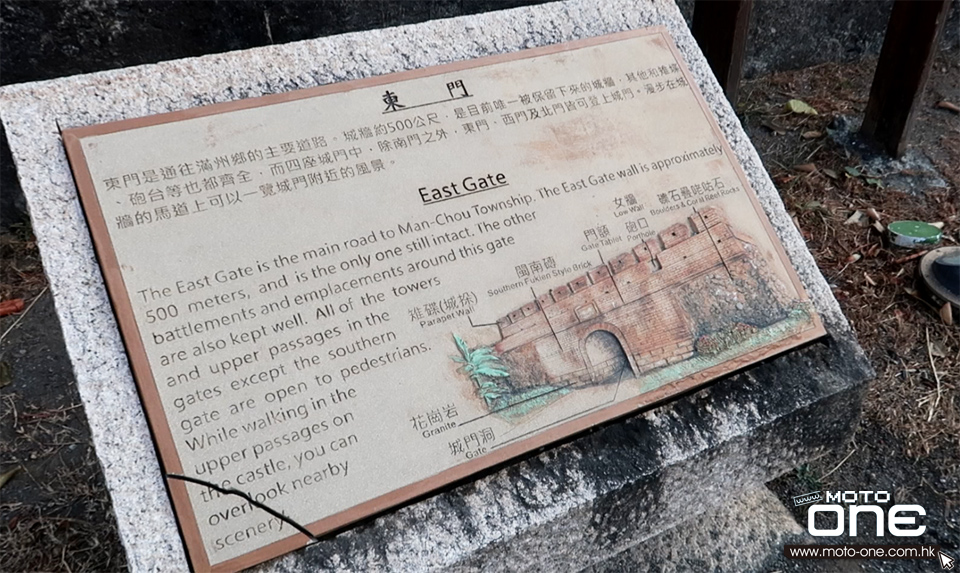 東門
東門是通往滿州鄉的主要道路。城牆約500公尺，是目前唯一被保留下來的城牆，其他和堆垛
、砲台等也都齊全，而四座城門中，除南門之外，東門、西門及北門皆可登上城門。漫步在城
牆的馬道上可以一覽城門附近的風景。
East Gate
The East Gate is the main road to Man-Chou Township. The East Gate wall is approximately
500 meters, and is the only one still intact. The other
battlements and emplacements around this gate
are also kept well. All of the towers
and upper passages in the
gates except the southern
gate are open to pedestrians.
While walking in the
upper passages on
the castle, you can
overlook nearby
scenery.
女牆
Low Wall
硓石疊砳𥑮石
Boulders & Coral Reef Rocks
門額
Gate Tablet
砲口
Porthole
閩南磚
Southern Fukien Style Brick
雉碟(城垛)
Parapet Wall
花崗岩
Granite
城門洞
Gate
www.
MOTO
ONE
www.moto-one.com.hk